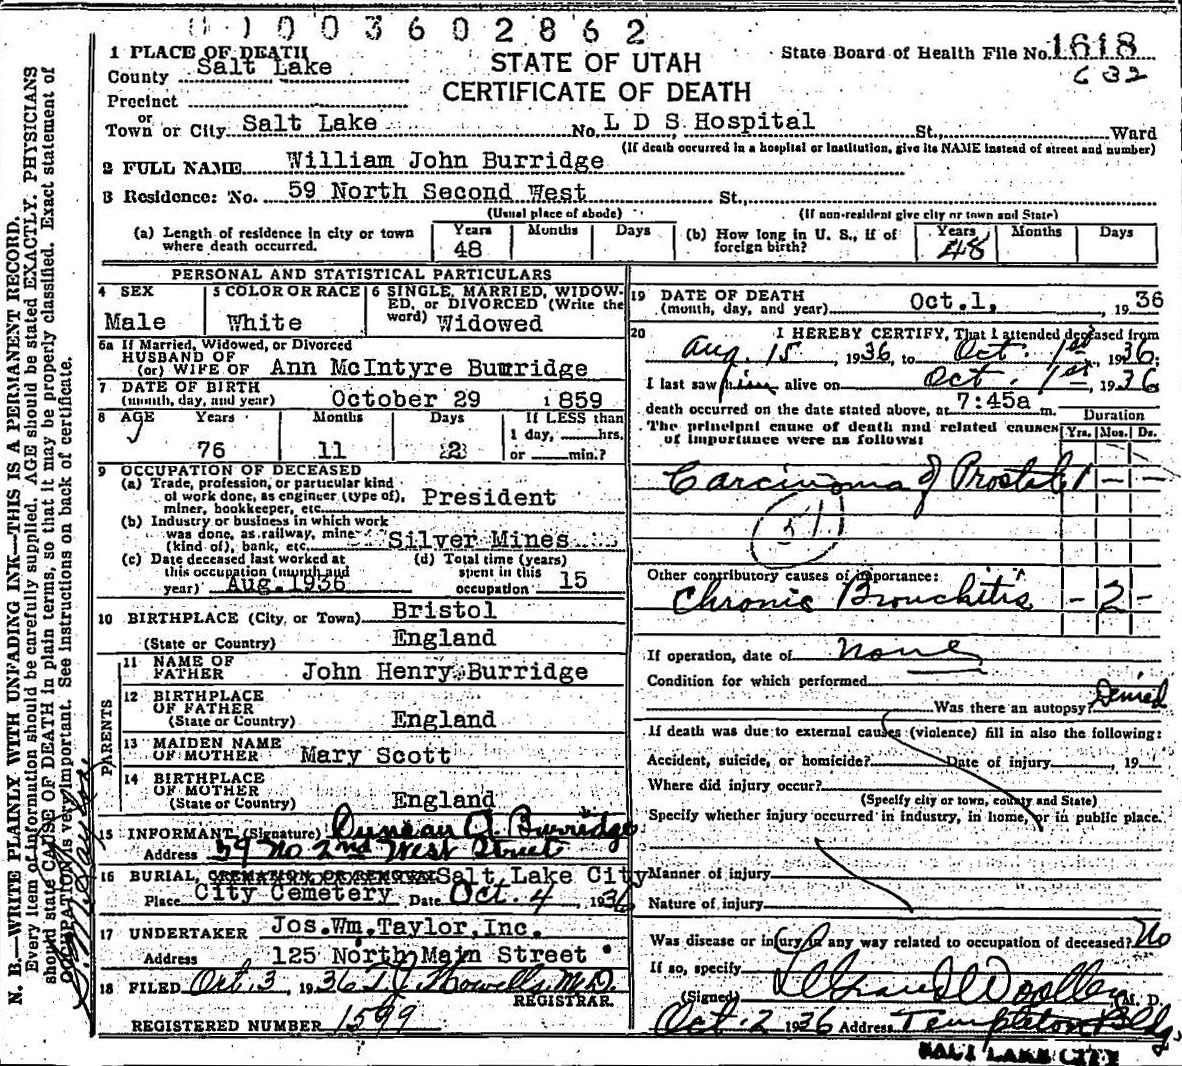 0 1 0 0 3 6 0 2 8 6 2
1 PLACE OF DEATH
County Salt Lake
Precinct
or
Town or City Salt Lake No. L D S Hospital St., Ward
(If death occurred in a hospital or institution, give its NAME instead of street and number)
STATE OF UTAH
CERTIFICATE OF DEATH
State Board of Health File No. 1618
632
2 FULL NAME William John Burridge
3 Residence: No. 59 North Second West St.,
(Usual place of abode) (If non-resident give city or town and State)
(a) Length of residence in city or town where death occurred. Years 48 Months Days
(b) How long in U. S., if of foreign birth? Years 48 Months Days
PERSONAL AND STATISTICAL PARTICULARS
4 SEX Male
5 COLOR OR RACE White
6 SINGLE, MARRIED, WIDOW-
ED, or DIVORCED (Write the
word) Widowed
6a If Married, Widowed, or Divorced
HUSBAND OF
(or) WIFE OF Ann McIntyre Burridge
7 DATE OF BIRTH
(month, day, and year) October 29 1859
8 AGE Years 76 Months 11 Days 2
If LESS than
1 day, hrs.
or min.?
9 OCCUPATION OF DECEASED
(a) Trade, profession, or particular kind
of work done, as engineer (type of),
miner, bookkeeper, etc. President
(b) Industry or business in which work
was done, as railway, mine
(kind of), bank, etc. Silver Mines
(c) Date deceased last worked at
this occupation (month and
year) Aug. 1936
(d) Total time (years)
spent in this
occupation 15
10 BIRTHPLACE (City, or Town) Bristol
(State or Country) England
PARENTS
11 NAME OF
FATHER John Henry Burridge
12 BIRTHPLACE
OF FATHER
(State or Country) England
13 MAIDEN NAME
OF MOTHER Mary Scott
14 BIRTHPLACE
OF MOTHER
(State or Country) England
15 INFORMANT (Signature) Duncan A Burridge
Address 59 No 2nd West Street
16 BURIAL, CREMATION, OR REMOVAL Salt Lake City
Place City Cemetery Date Oct. 4, 1936
17 UNDERTAKER Jos. Wm. Taylor, Inc.
Address 125 North Main Street
18 FILED Oct 3, 1936 T J Howells M.D.
REGISTRAR.
REGISTERED NUMBER 1599
19 DATE OF DEATH
(month, day, and year) Oct. 1, 1936
20 I HEREBY CERTIFY, That I attended deceased from
Aug. 15, 1936, to Oct. 1st, 1936;
I last saw him alive on Oct. 1st, 1936
death occurred on the date stated above, at 7:45a m.
The principal cause of death and related causes
of importance were as follows:
Duration
Yrs. Mos. Ds.
Carcinoma of Prostate 1 - -
51
Other contributory causes of importance:
Chronic Bronchitis - 2 -
If operation, date of none
Condition for which performed
Was there an autopsy? Denied
If death was due to external causes (violence) fill in also the following:
Accident, suicide, or homicide? Date of injury , 19
Where did injury occur?
(Specify city or town, county and State)
Specify whether injury occurred in industry, in home, or in public place.
Manner of injury
Nature of injury
Was disease or injury in any way related to occupation of deceased? No
If so, specify
(Signed) Woolley M. D.
Oct. 2 1936 Address Templeton Bldg.
SALT LAKE CITY
N. B.—WRITE PLAINLY WITH UNFADING INK—THIS IS A PERMANENT RECORD.
Every item of information should be carefully supplied. AGE should be stated EXACTLY. PHYSICIANS
should state CAUSE OF DEATH in plain terms, so that it may be properly classified. Exact statement of
OCCUPATION is very important. See instructions on back of certificate.